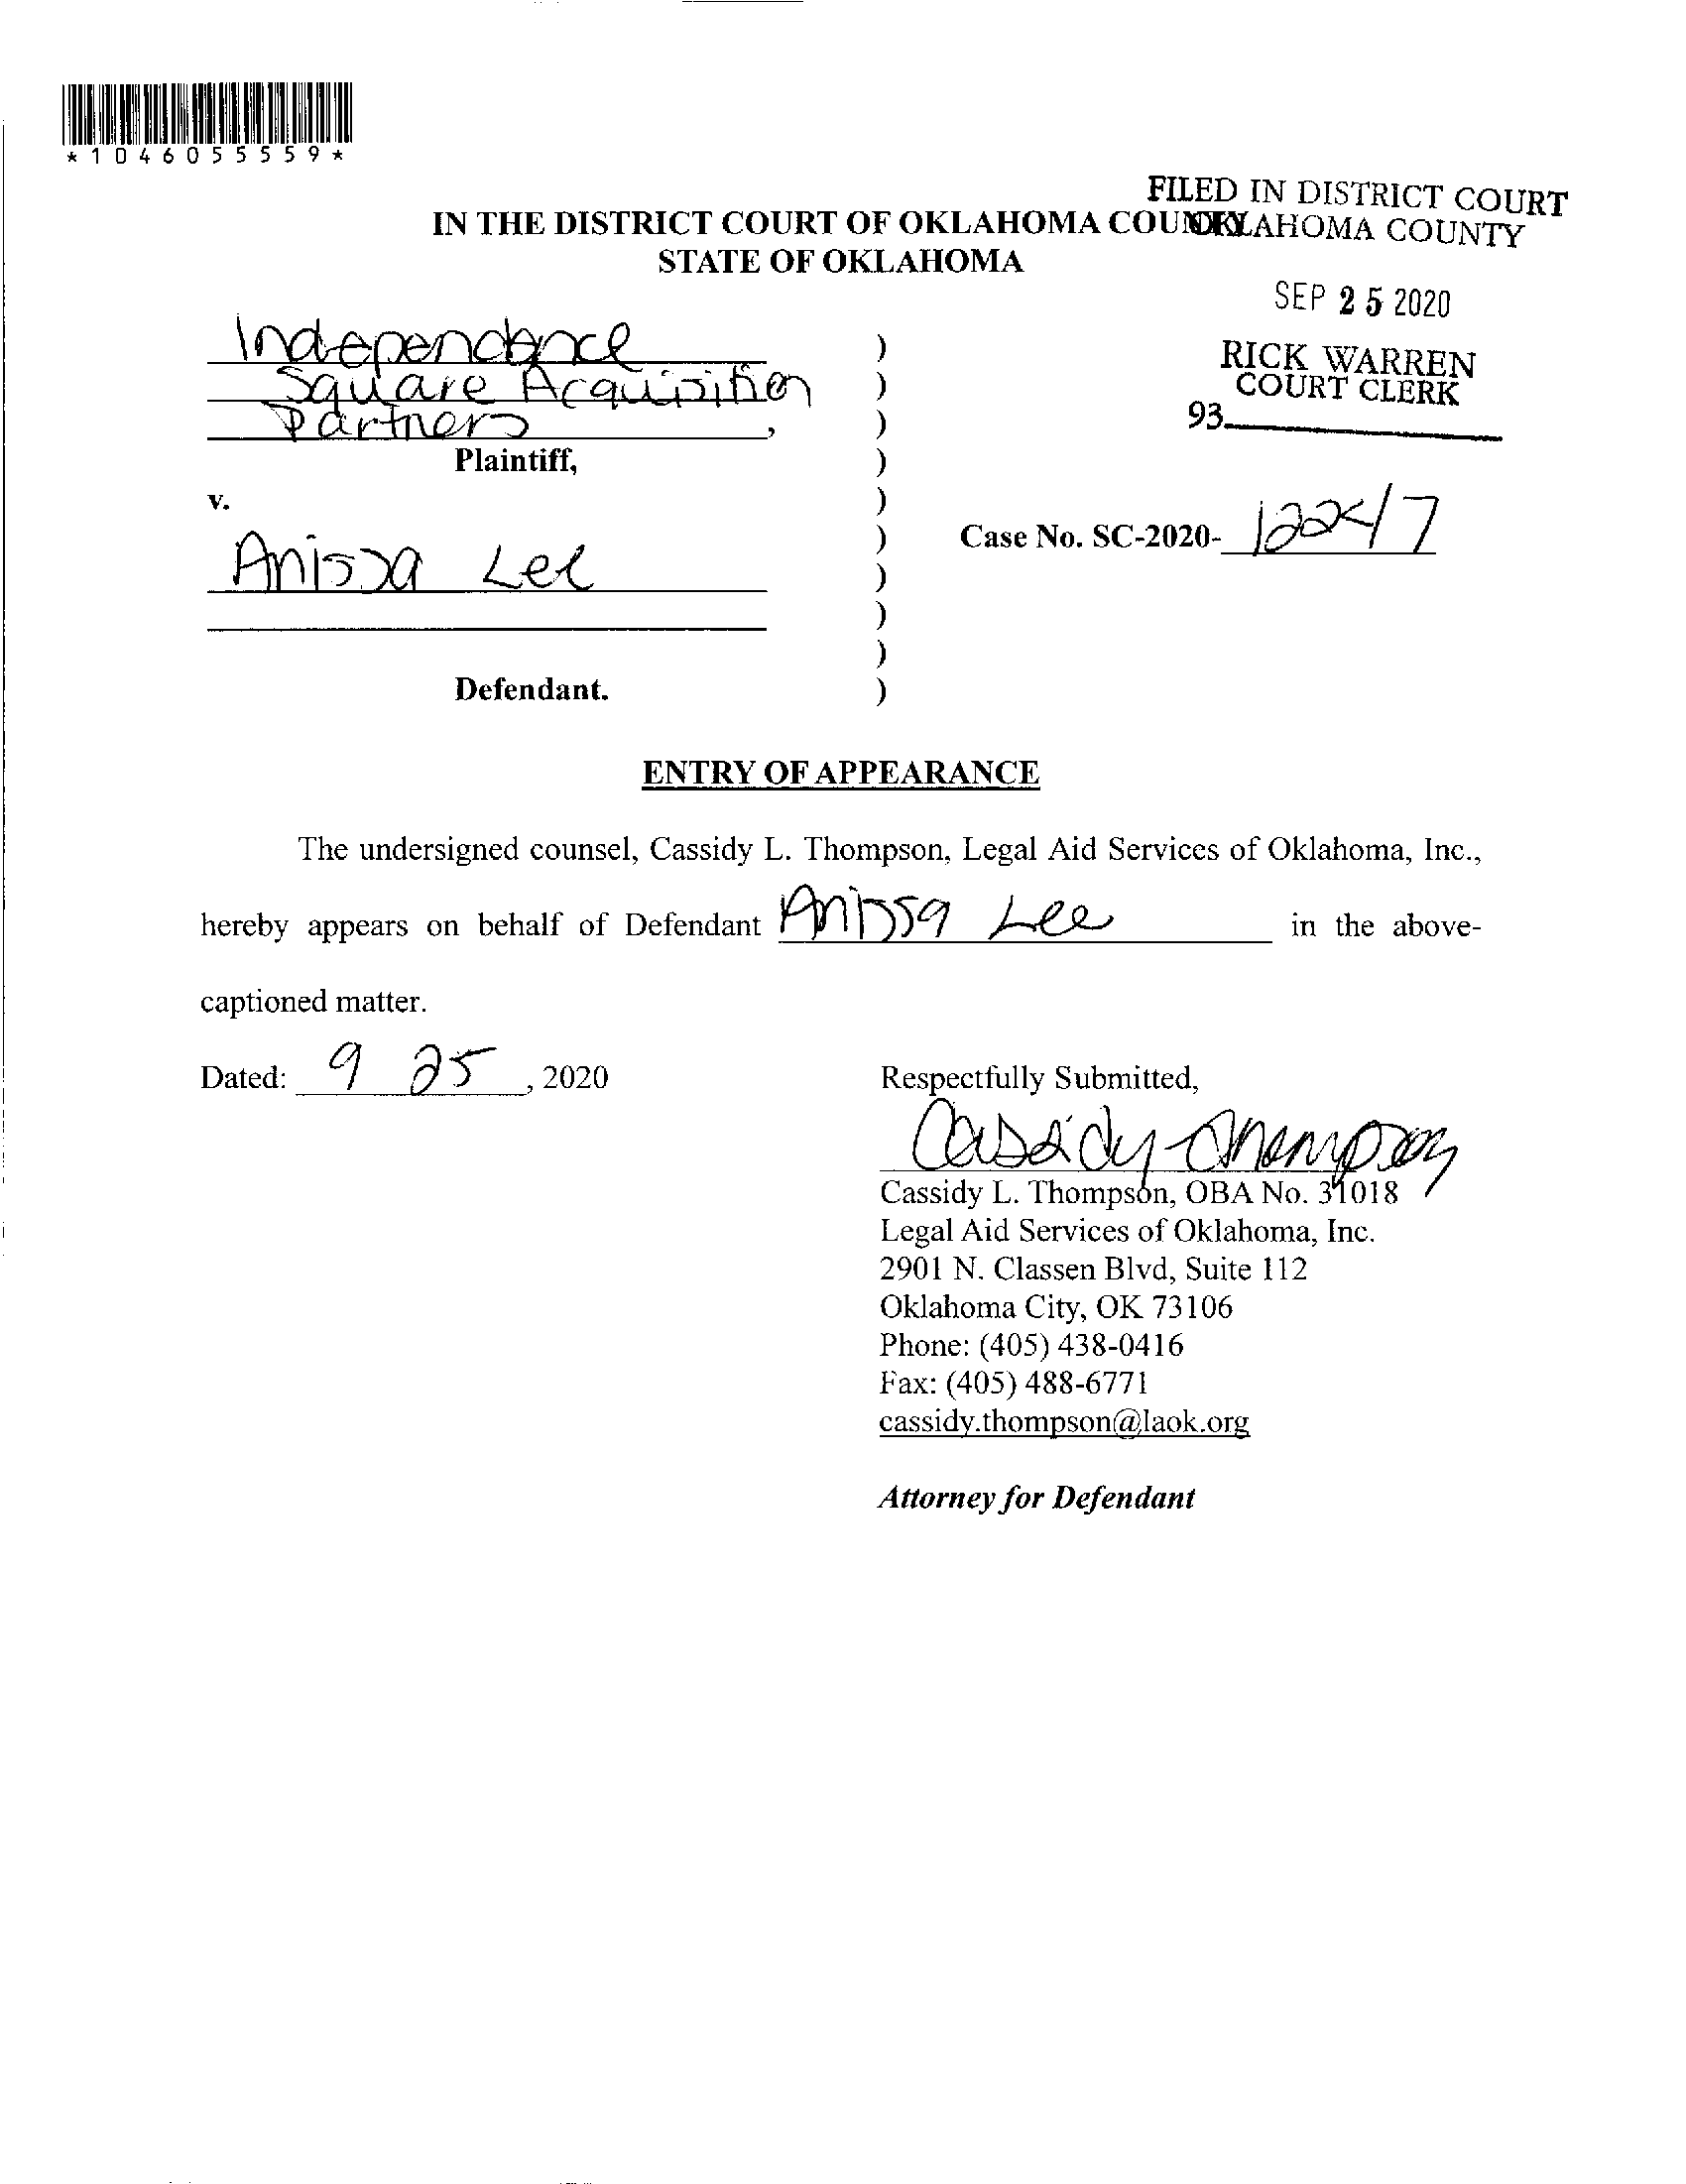 *1046055559*
FILED IN DISTRICT COURT
OKLAHOMA COUNTY
IN THE DISTRICT COURT OF OKLAHOMA COUNTY
STATE OF OKLAHOMA
SEP 25 2020
RICK WARREN
COURT CLERK
93
Independence
Square Acquisition
Partners,
Plaintiff,
v.
Case No. SC-2020-12247
Anissa Lee
Defendant.
ENTRY OF APPEARANCE
The undersigned counsel, Cassidy L. Thompson, Legal Aid Services of Oklahoma, Inc.,
hereby appears on behalf of Defendant Anissa Lee in the above-
captioned matter.
Dated: 9 25, 2020
Respectfully Submitted,
Cassidy Thompson
Cassidy L. Thompson, OBA No. 31018
Legal Aid Services of Oklahoma, Inc.
2901 N. Classen Blvd, Suite 112
Oklahoma City, OK 73106
Phone: (405) 438-0416
Fax: (405) 488-6771
cassidy.thompson@laok.org
Attorney for Defendant